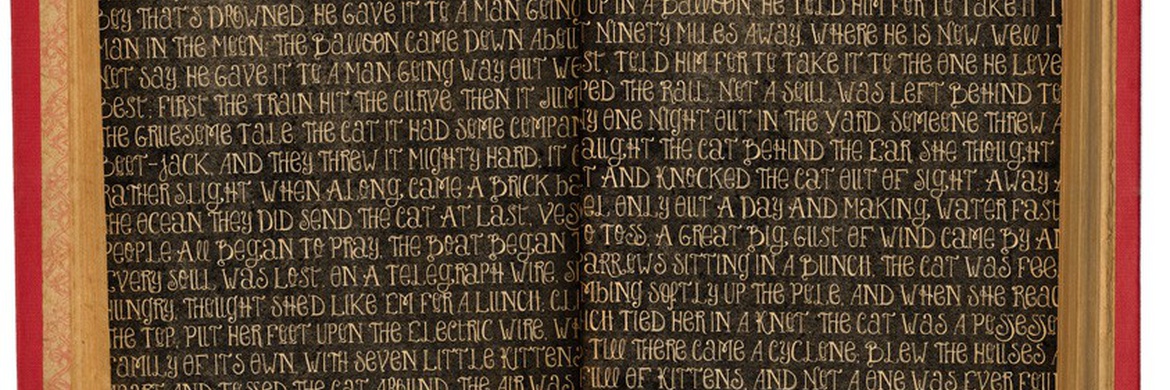 BOY THAT'S DROWNED. HE GAVE IT TO A MAN GOING UP IN A BALLOON. HE TOLD HIM FOR TO TAKE IT T
MAN IN THE MOON; THE BALLOON CAME DOWN ABOUT NINETY MILES AWAY. WHERE HE IS NOW, WELL I
NOT SAY. HE GAVE IT TO A MAN GOING WAY OUT WEST, TOLD HIM FOR TO TAKE IT TO THE ONE HE LOVE
BEST. FIRST THE TRAIN HIT THE CURVE, THEN IT JUMPED THE RAIL. NOT A SOUL WAS LEFT BEHIND TO
THE GRUESOME TALE. THE CAT IT HAD SOME COMPANY ONE NIGHT OUT IN THE YARD. SOMEONE THREW A
BOOT-JACK, AND THEY THREW IT MIGHTY HARD; IT CAUGHT THE CAT BEHIND THE EAR SHE THOUGHT
RATHER SLIGHT WHEN ALONG CAME A BRICK BAT AND KNOCKED THE CAT OUT OF SIGHT. AWAY A
THE OCEAN THEY DID SEND THE CAT AT LAST. VESSEL ONLY OUT A DAY AND MAKING WATER FAST
PEOPLE ALL BEGAN TO PRAY, THE BOAT BEGAN TO TOSS. A GREAT BIG GUST OF WIND CAME BY AN
EVERY SOUL WAS LOST. ON A TELEGRAPH WIRE, SPARROWS SITTING IN A BUNCH. THE CAT WAS FEE
HUNGRY, THOUGHT SHE'D LIKE 'EM FOR A LUNCH. CLIMBING SOFTLY UP THE POLE, AND WHEN SHE REAC
THE TOP, PUT HER FOOT UPON THE ELECTRIC WIRE, WHICH TIED HER IN A KNOT. THE CAT WAS A POSSESSO
FAMILY OF ITS OWN, WITH SEVEN LITTLE KITTENS TILL THERE CAME A CYCLONE. BLEW THE HOUSES A
APART AND TOSSED THE CAT AROUND. THE AIR WAS FULL OF KITTENS, AND NOT A ONE WAS EVER FOUN